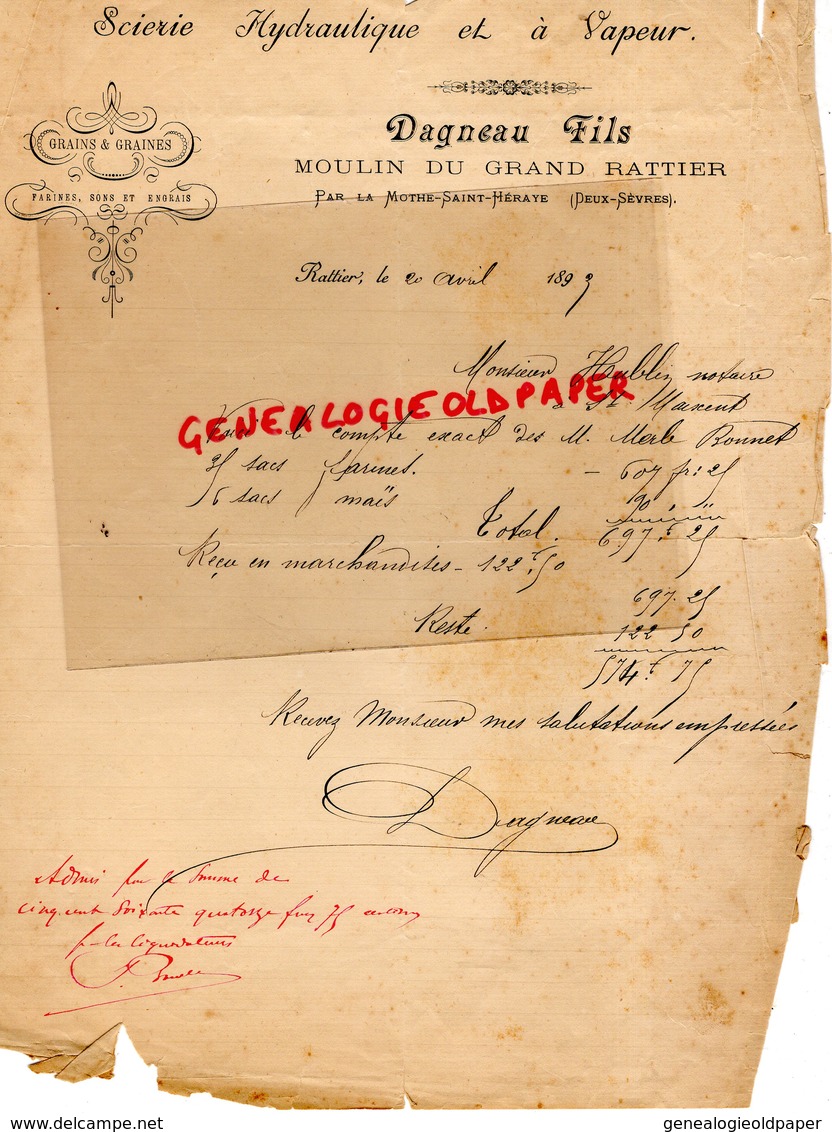 Scierie Hydraulique et à Vapeur.
GRAINS & GRAINES
FARINES, SONS ET ENGRAIS
Dagneau Fils
MOULIN DU GRAND RATTIER
PAR LA MOTHE-SAINT-HÉRAYE (DEUX-SÈVRES).
Rattier, le 20 avril 1893
Monsieur notaire
à St Maixent
GENEALOGIEOLDPAPER
le compte exact des M. Merle Bonnet
35 sacs farines. — 607 fr: 25
6 sacs maïs 90 "
Total. 697.f 25
Reçu en marchandises - 122.f 50
697.25
Reste. 122 50
574.f 75
Recevez Monsieur mes salutations empressées
Dagneau
Admis pour la somme de
cinq cent soixante quatorze francs 75 centimes
p. les liquidateurs
genealogieoldpaper